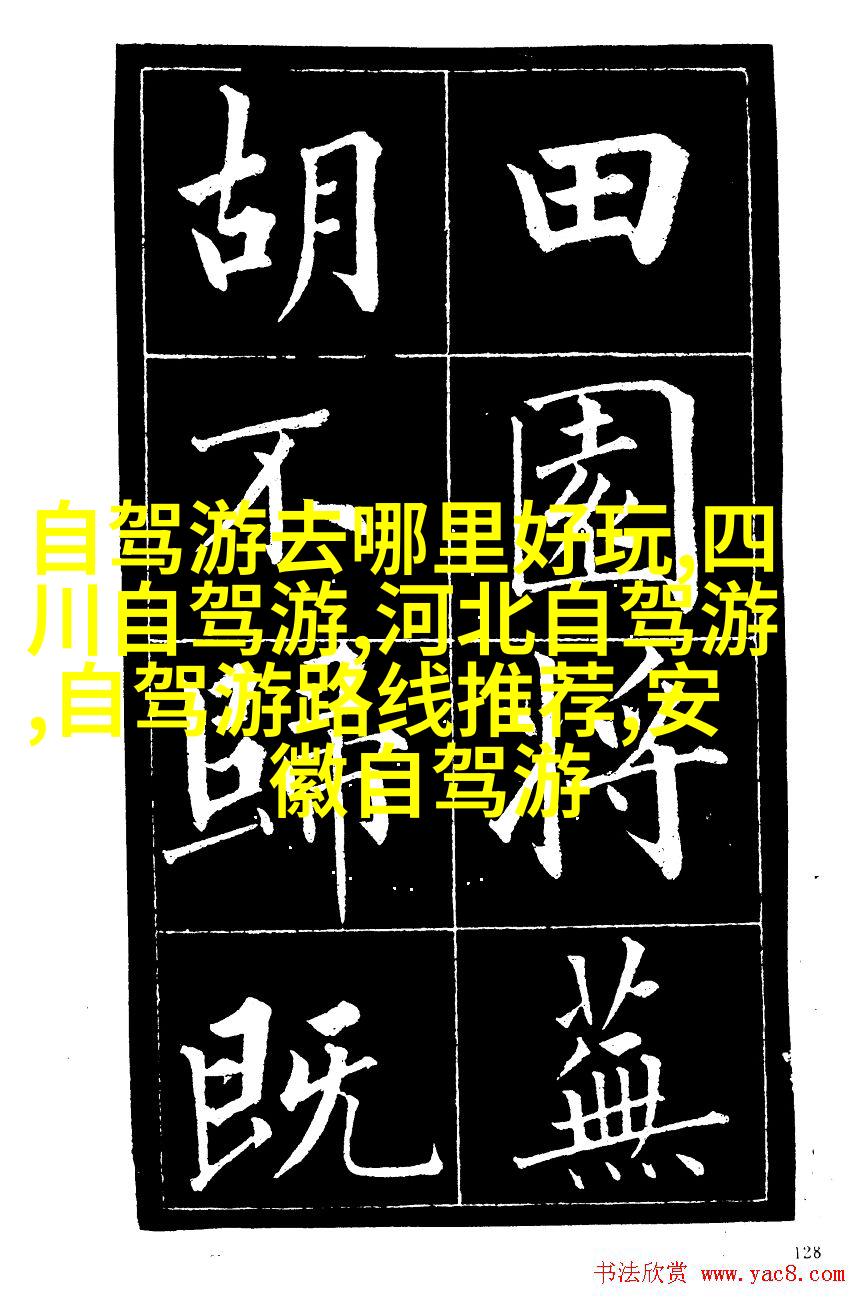 田園將蕪
胡不歸既
自驾游去哪里好玩,四
川自驾游,河北自驾游
,自驾游路线推荐,安
徽自驾游
128
书法欣赏 www.yac8.com